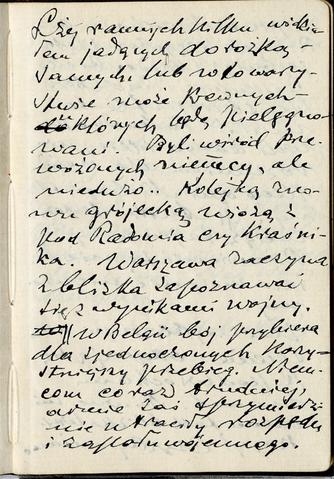 Lżej rannych kilku widzia-
łem jadących dorożką
samych lub w towarzy-
stwie może krewnych
do których będą pielęgno-
wani. Byli wśród prze-
wożonych niemcy, ale
niedużo.. Kolejką zno-
wu grójecką wiozą z
pod Radomia czy Kraśni-
ka.. Warszawa zaczyna
z bliska zapoznawać
się z wynikami wojny.
W Belgii bój przybiera
dla zjednoczonych korzy-
stniejszy przebieg. Niem-
com coraz trudniej,
armie zaś sprzymierze-
nie utraciły rozpędu
i zapału wojennego.